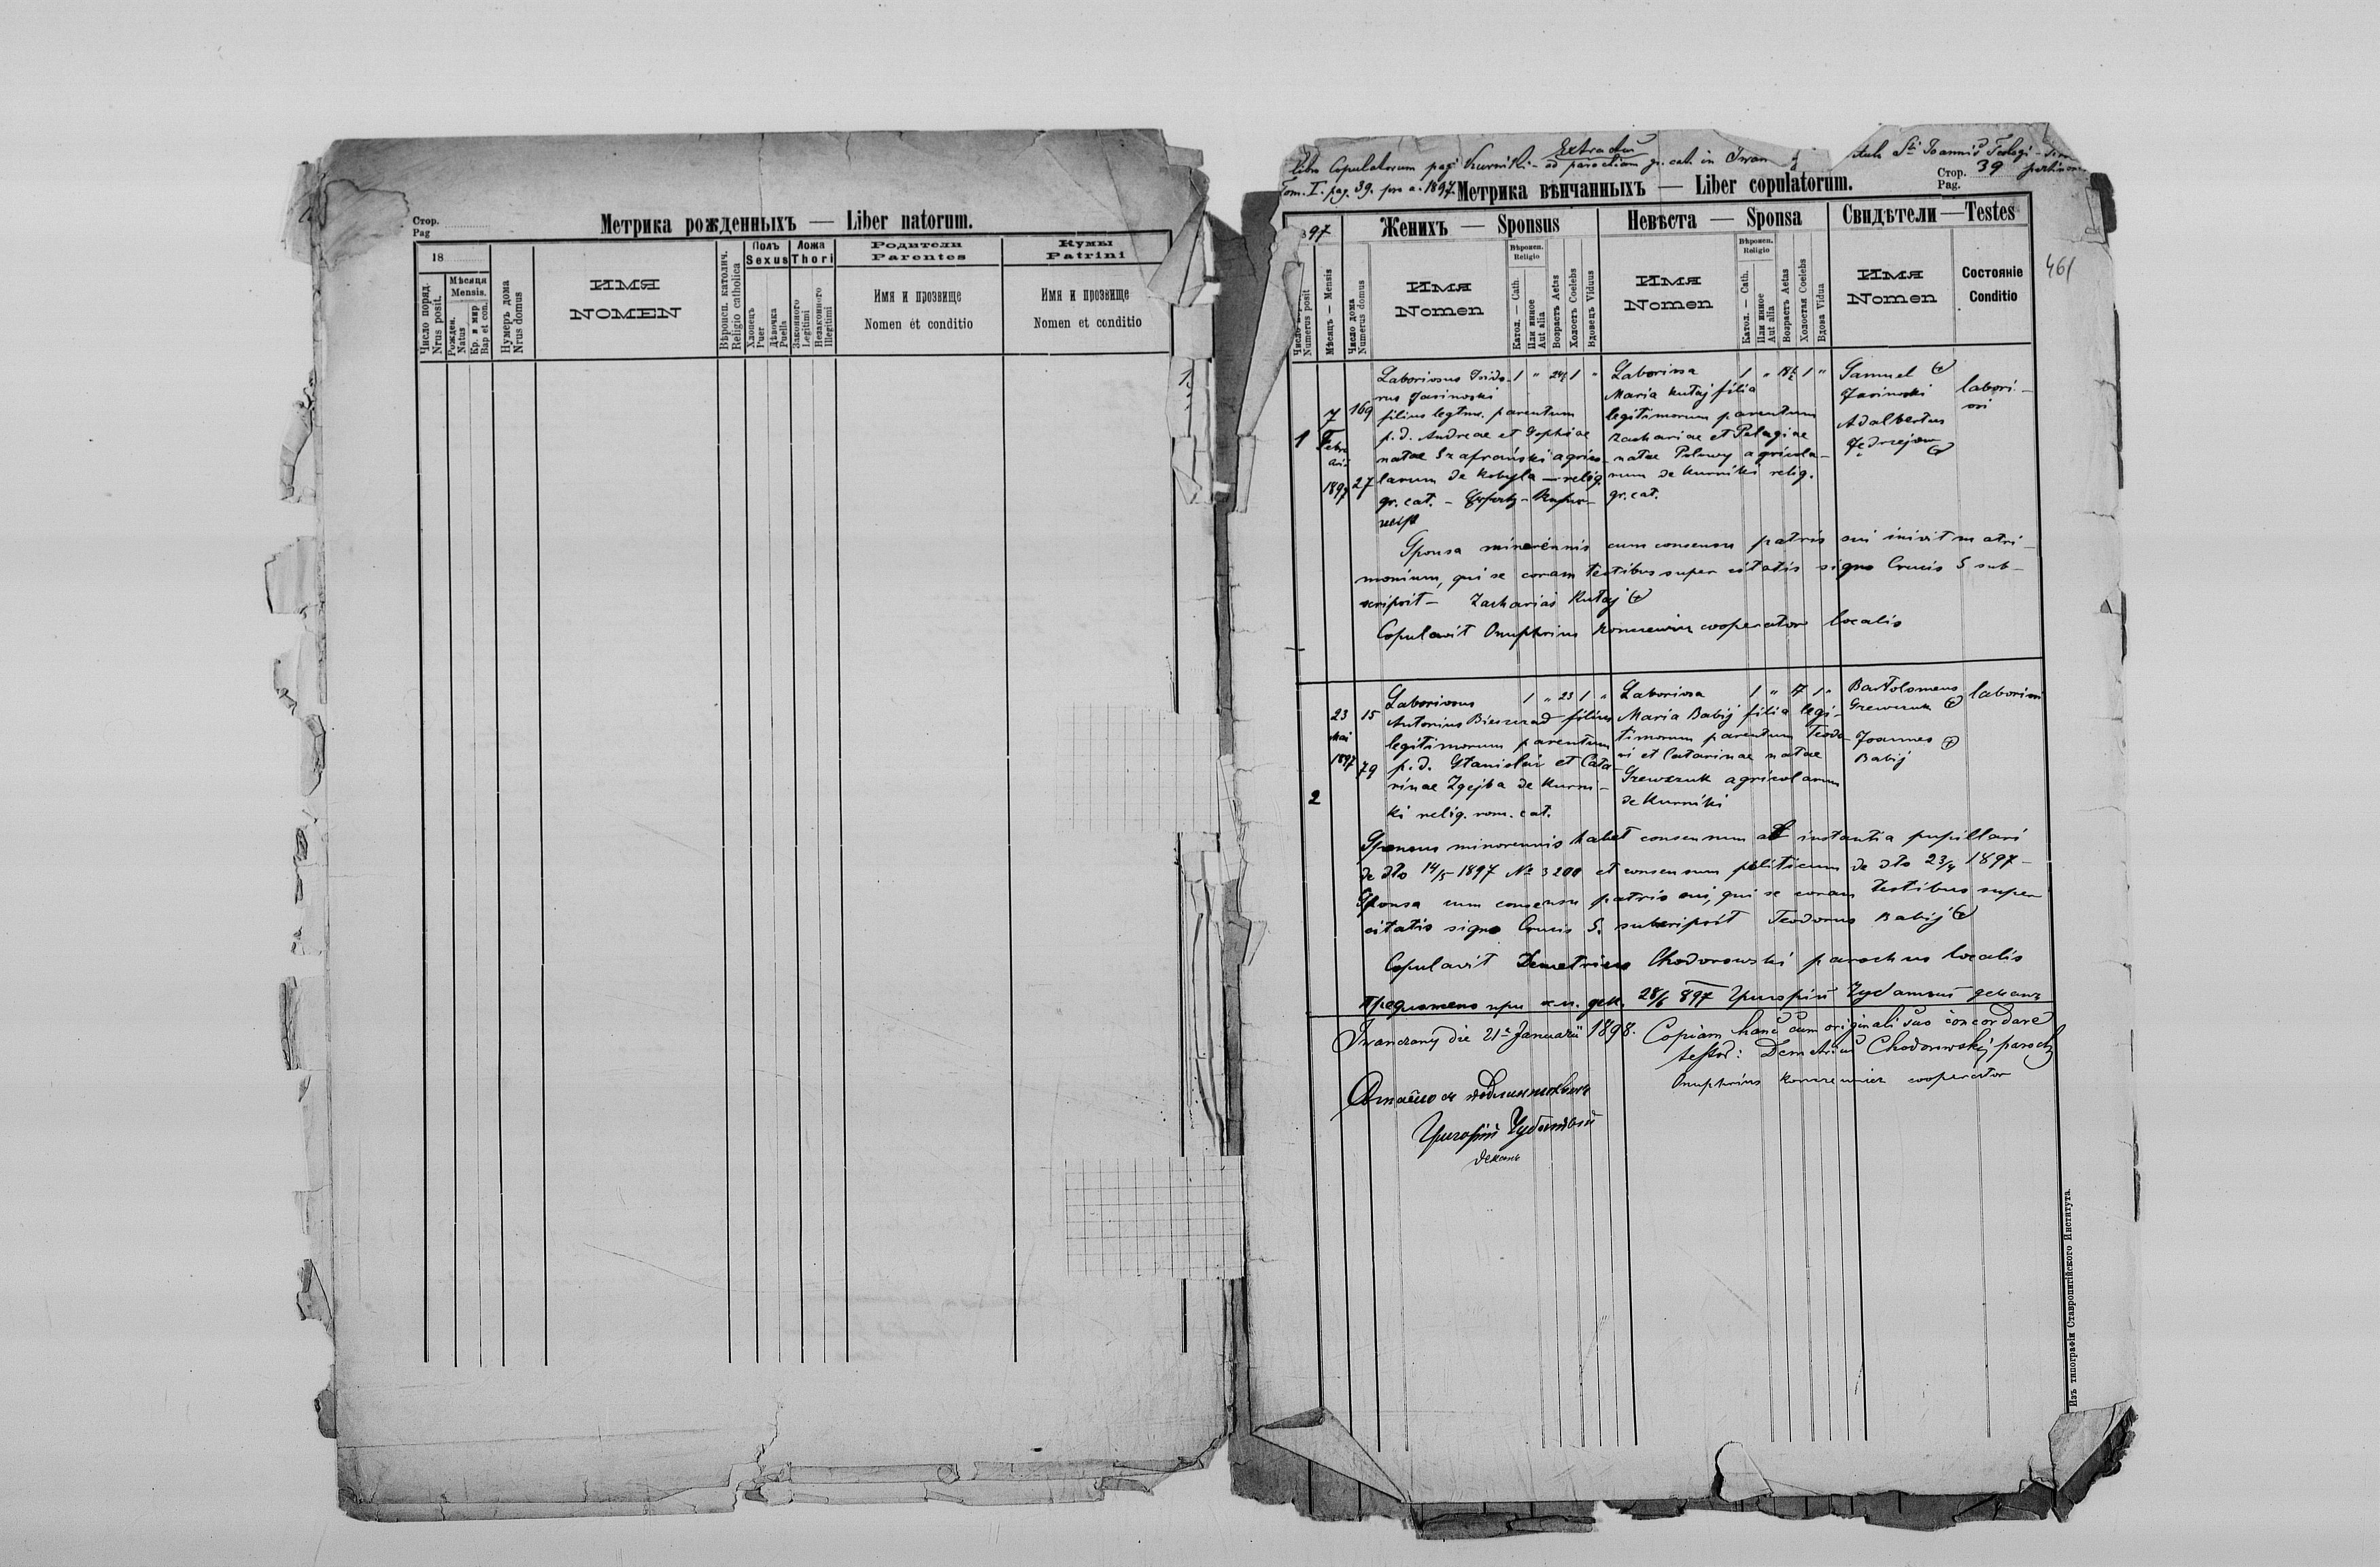 Стор.
Pag
Метрика рожденныхъ — Liber natorum.
18
Число поряд.
Nrus posit.
Мѣсяця
Mensis.
Рожден.
Natus
Кр. и мир
Bap et con.
Нумеръ дома
Nrus domus
ИМЯ
NOMEN
Вѣроисп. католич.
Religio catholica
Полъ
Sexus
Хлопецъ
Puer
Дѣвочка
Puella
Ложа
Thori
Законного
Legitimi
Незаконного
Illegitimi
Родители
Parentes
Имя и прозвище
Nomen et conditio
Кумы
Patrini
Имя и прозвище
Nomen et conditio
Extractus
libro Copulatorum pagi Kurniki - ad parochiam gr. cat. in Iwan
tit. Sti Joannis Teologi
Tom. I. pag. 39. pro a. 1897.
Метрика вѣнчанныхъ — Liber copulatorum.
Стор.
Pag.
39
461
97
Женихъ — Sponsus
Невѣста — Sponsa
Свидѣтели — Testes
Число
Numerus posit
Мѣсяцъ — Mensis
Число дома
Numerus domus
Имя
Nomen
Вѣроисп.
Religio
Катол. — Cath.
Или иное
Aut alia
Возрастъ Aetas
Холостъ Coelebs
Вдовецъ Viduus
Имя
Nomen
Вѣроисп.
Religio
Катол. — Cath.
Или инное
Aut alia
Возрастъ Aetas
Холостая Coelebs
Вдова Vidua
Имя
Nomen
Состояніе
Conditio
1
7
Febru
arii
1897
169
27
Laboriosus Isido- 1 " 24 1 "
rus Jasinowski
filius legtmr. parentum
p.d. Andreae et Sophiae
natae Szafrański agrico-
larum de Kobyla — relig.
gr. cat.
Laboriosa 1 " 18 1 "
Maria Kutaj filia
legitimorum parentum
Zachariae et Pelagiae
natae Polowy agricola-
rum de Kurniki relig.
gr. cat.
Samuel
Jasinowski
Adalbertus
labori-
osi
Sponsa minorennis cum consensu patris sui inivit matri-
monium, qui se coram testibus super citatis signo Crucis S sub-
scripsit — Zacharias Kutaj
Copulavit Onuphrius cooperator localis
2
23
Mai
1897
15
79
Laboriosus 1 " 23 1 "
Antonius Bieszczad filius
legitimorum parentum
p.d. Stanislai et Cata-
rinae Zgejba de Kurni-
ki relig. rom. cat.
Laboriosa 1 " 17 1 "
Maria Babij filia legi-
timorum parentum Teodo-
ri et Catarinae natae
Szewczuk agricolarum
de Kurniki
Bartolomeus
Szewczuk
Joannes
Babij
laboriosi
Sponsus minorennis habet consensum ab instantia pupillari
de dto 14/5 1897 № 3200 et consensum politicum de dto 23/4 1897 -
Sponsa cum consensu patris sui, qui se coram testibus super
citatis signo Crucis S. subscripsit Teodorus Babij
Copulavit Demetrius Chodorowski parochus localis
Предложено при кан. 28/6 897 Григорій деканъ
Iwanczany die 21 Januarii 1898. Copiam hanc cum originali suo concordare
testor: Demetrius Chodorowskij paroch
Onuphrius cooperator
Григорій
деканъ
Изъ типографіи Ставропигійского Института.